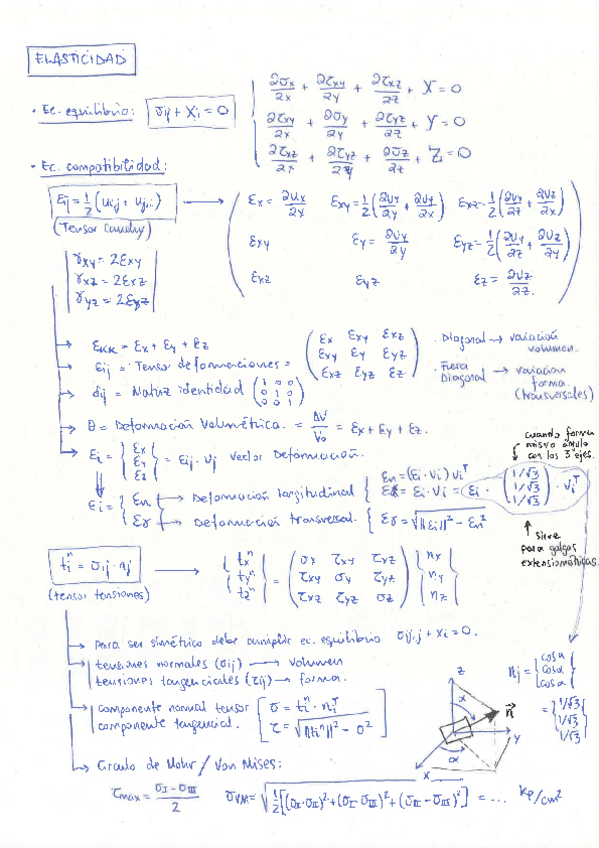 ELASTICIDAD
· Ec. equilibrio: σij + Xi = 0
∂σx/∂x + ∂τxy/∂y + ∂τxz/∂z + X = 0
∂τxy/∂x + ∂σy/∂y + ∂τyz/∂z + Y = 0
∂τxz/∂x + ∂τyz/∂y + ∂σz/∂z + Z = 0
· Ec. compatibilidad:
εij = 1/2 (ui,j + uj,i) → εx = ∂ux/∂x εxy = 1/2 (∂ux/∂y + ∂uy/∂x) εxz = 1/2 (∂ux/∂z + ∂uz/∂x)
(Tensor Cauchy)
εxy εy = ∂uy/∂y εyz = 1/2 (∂uy/∂z + ∂uz/∂y)
εxz εyz εz = ∂uz/∂z.
γxy = 2εxy
γxz = 2εxz
γyz = 2εyz
→ εKK = εx + εy + εz
→ εij = Tensor deformaciones = (εx εxy εxz
εxy εy εyz
εxz εyz εz)
. Diagonal → variación volumen.
. Fuera Diagonal → variación forma. (transversales)
→ δij = Matriz identidad (1 0 0
0 1 0
0 0 1)
→ θ = Deformación Volumétrica. = ΔV/V0 = εx + εy + εz.
→ εi = {εx εy εz} = εij · νj vector Deformación.
εi = {εn → Deformación longitudinal {εn = (εi · νi) νiT
= εi · νi = εi · (1/√3 1/√3 1/√3) · νiT
εγ → Deformación transversal. {εγ = √‖εi‖² − εn²
cuando forman
mismo ángulo
con los 3 ejes.
sirve
para galgas
extensiométricas.
tin = σij · nj → {txn tyn tzn} = (σx τxy τxz
τxy σy τyz
τxz τyz σz) {nx ny nz}
(tensor tensiones)
→ Para ser simétrico debe cumplir ec. equilibrio σij,j + xi = 0.
→ tensiones normales (σij) → volumen
tensiones tangenciales (τij) → forma.
→ componente normal tensor [σ = tin · niT
componente tangencial. [τ = √‖tin‖² − σ²
nj = {cos α
cos α
cos α}
= {1/√3
1/√3
1/√3}
z
α
n
y
α
x
→ Círculo de Mohr / Von Mises:
τmax = (σI − σIII)/2 σV.M. = √1/2[(σI − σII)² + (σI − σIII)² + (σII − σIII)²] = ... kp/cm²